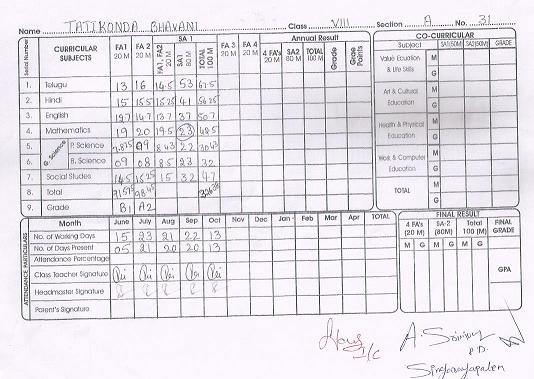 Name TATIKONDA BHAVANI Class VIII Section A No. 31
Serial Number CURRICULAR SUBJECTS FA1 20 M FA 2 20 M SA 1 FA1, FA2 20 M SA1 80 M TOTAL 100 M FA 3 20 M FA 4 20 M Annual Result FA3, FA4 20 M SA2 80 M TOTAL 100 M Grade Grade Points
1. Telugu 13 16 14.5 53 67.5
2. Hindi 15 15.5 15.25 41 56.25
3. English 12.7 14.7 13.7 37 50.7
4. Mathematics 19 20 19.5 23 42.5
G. Science
5. P. Science 7.875 09 8.43 22 30.43
6. B. Science 09 08 8.5 23 32
7. Social Studes 14.5 15.25 15 32 47
8. Total 91.575 98.45
9. Grade B1 A2
CO-CURRICULAR
Subject SA1(50M) SA2(50M) GRADE
Value Eduation & Life Skills M G
Art & Cultural Education M G
Health & Phyical Education M G
Work & Computer Education M G
TOTAL M G
ATTENDANCE PARTICULARS
Month June July Aug Sep Oct Nov Dec Jan Feb Mar Apr TOTAL
No. of Working Days 15 23 21 22 13
No. of Days Present 05 21 20 20 13
Attendance Percentage
Class Teacher Signature
Headmaster Signature
Parent's Signature
FINAL RESULT
4 FA's (20 M) SA-2 (80M) Total 100 (M) FINAL GRADE
M G M G M G
GPA
I/C